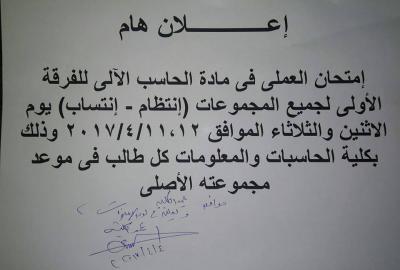 إعـــلان هام
إمتحان العملى فى مادة الحاسب الآلى للفرقة
الأولى لجميع المجموعات (إنتظام - إنتساب) يوم
الاثنين والثلاثاء الموافق ٢٠١٧/٤/١١،١٢ وذلك
بكلية الحاسبات والمعلومات كل طالب فى موعد
مجموعته الأصلى